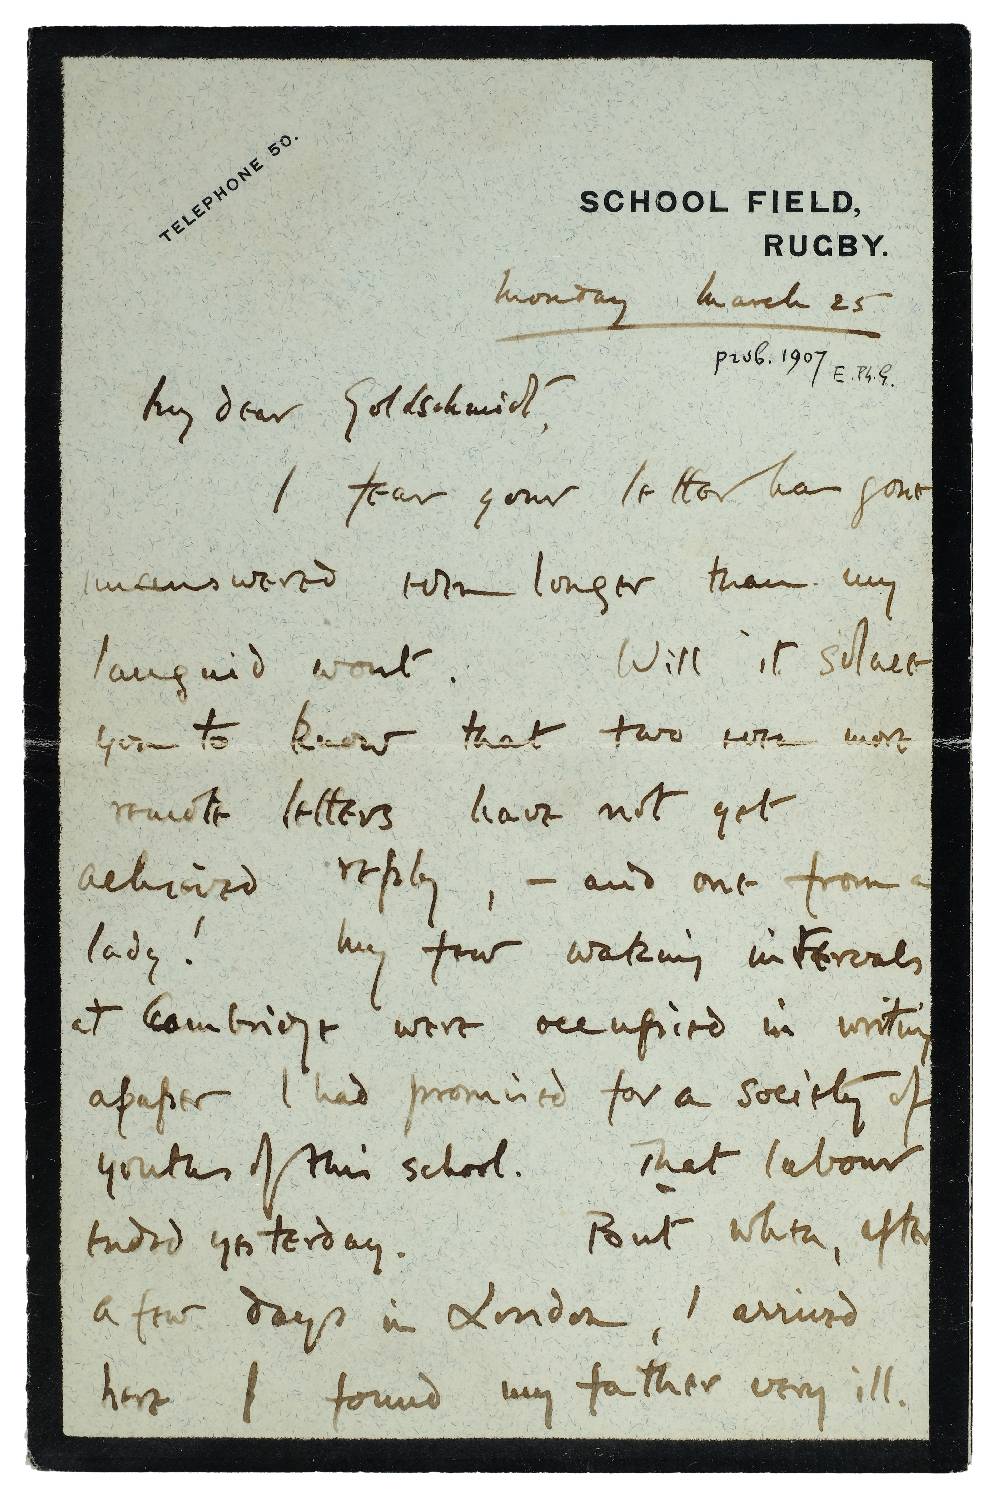 TELEPHONE 50.
SCHOOL FIELD,
RUGBY.
Monday March 25
prob. 1907 E.Ph.G.
My dear Goldschmidt,
I fear your letter has gone
unanswered even longer than my
languid wont. Will it solace
you to know that two even more
remote letters have not yet
achieved reply, – and one from a
lady! My few waking intervals
at Cambridge were occupied in writing
a paper I had promised for a society of
youths of this school. That labour
ended yesterday. But when, after
a few days in London, I arrived
here I found my father very ill.